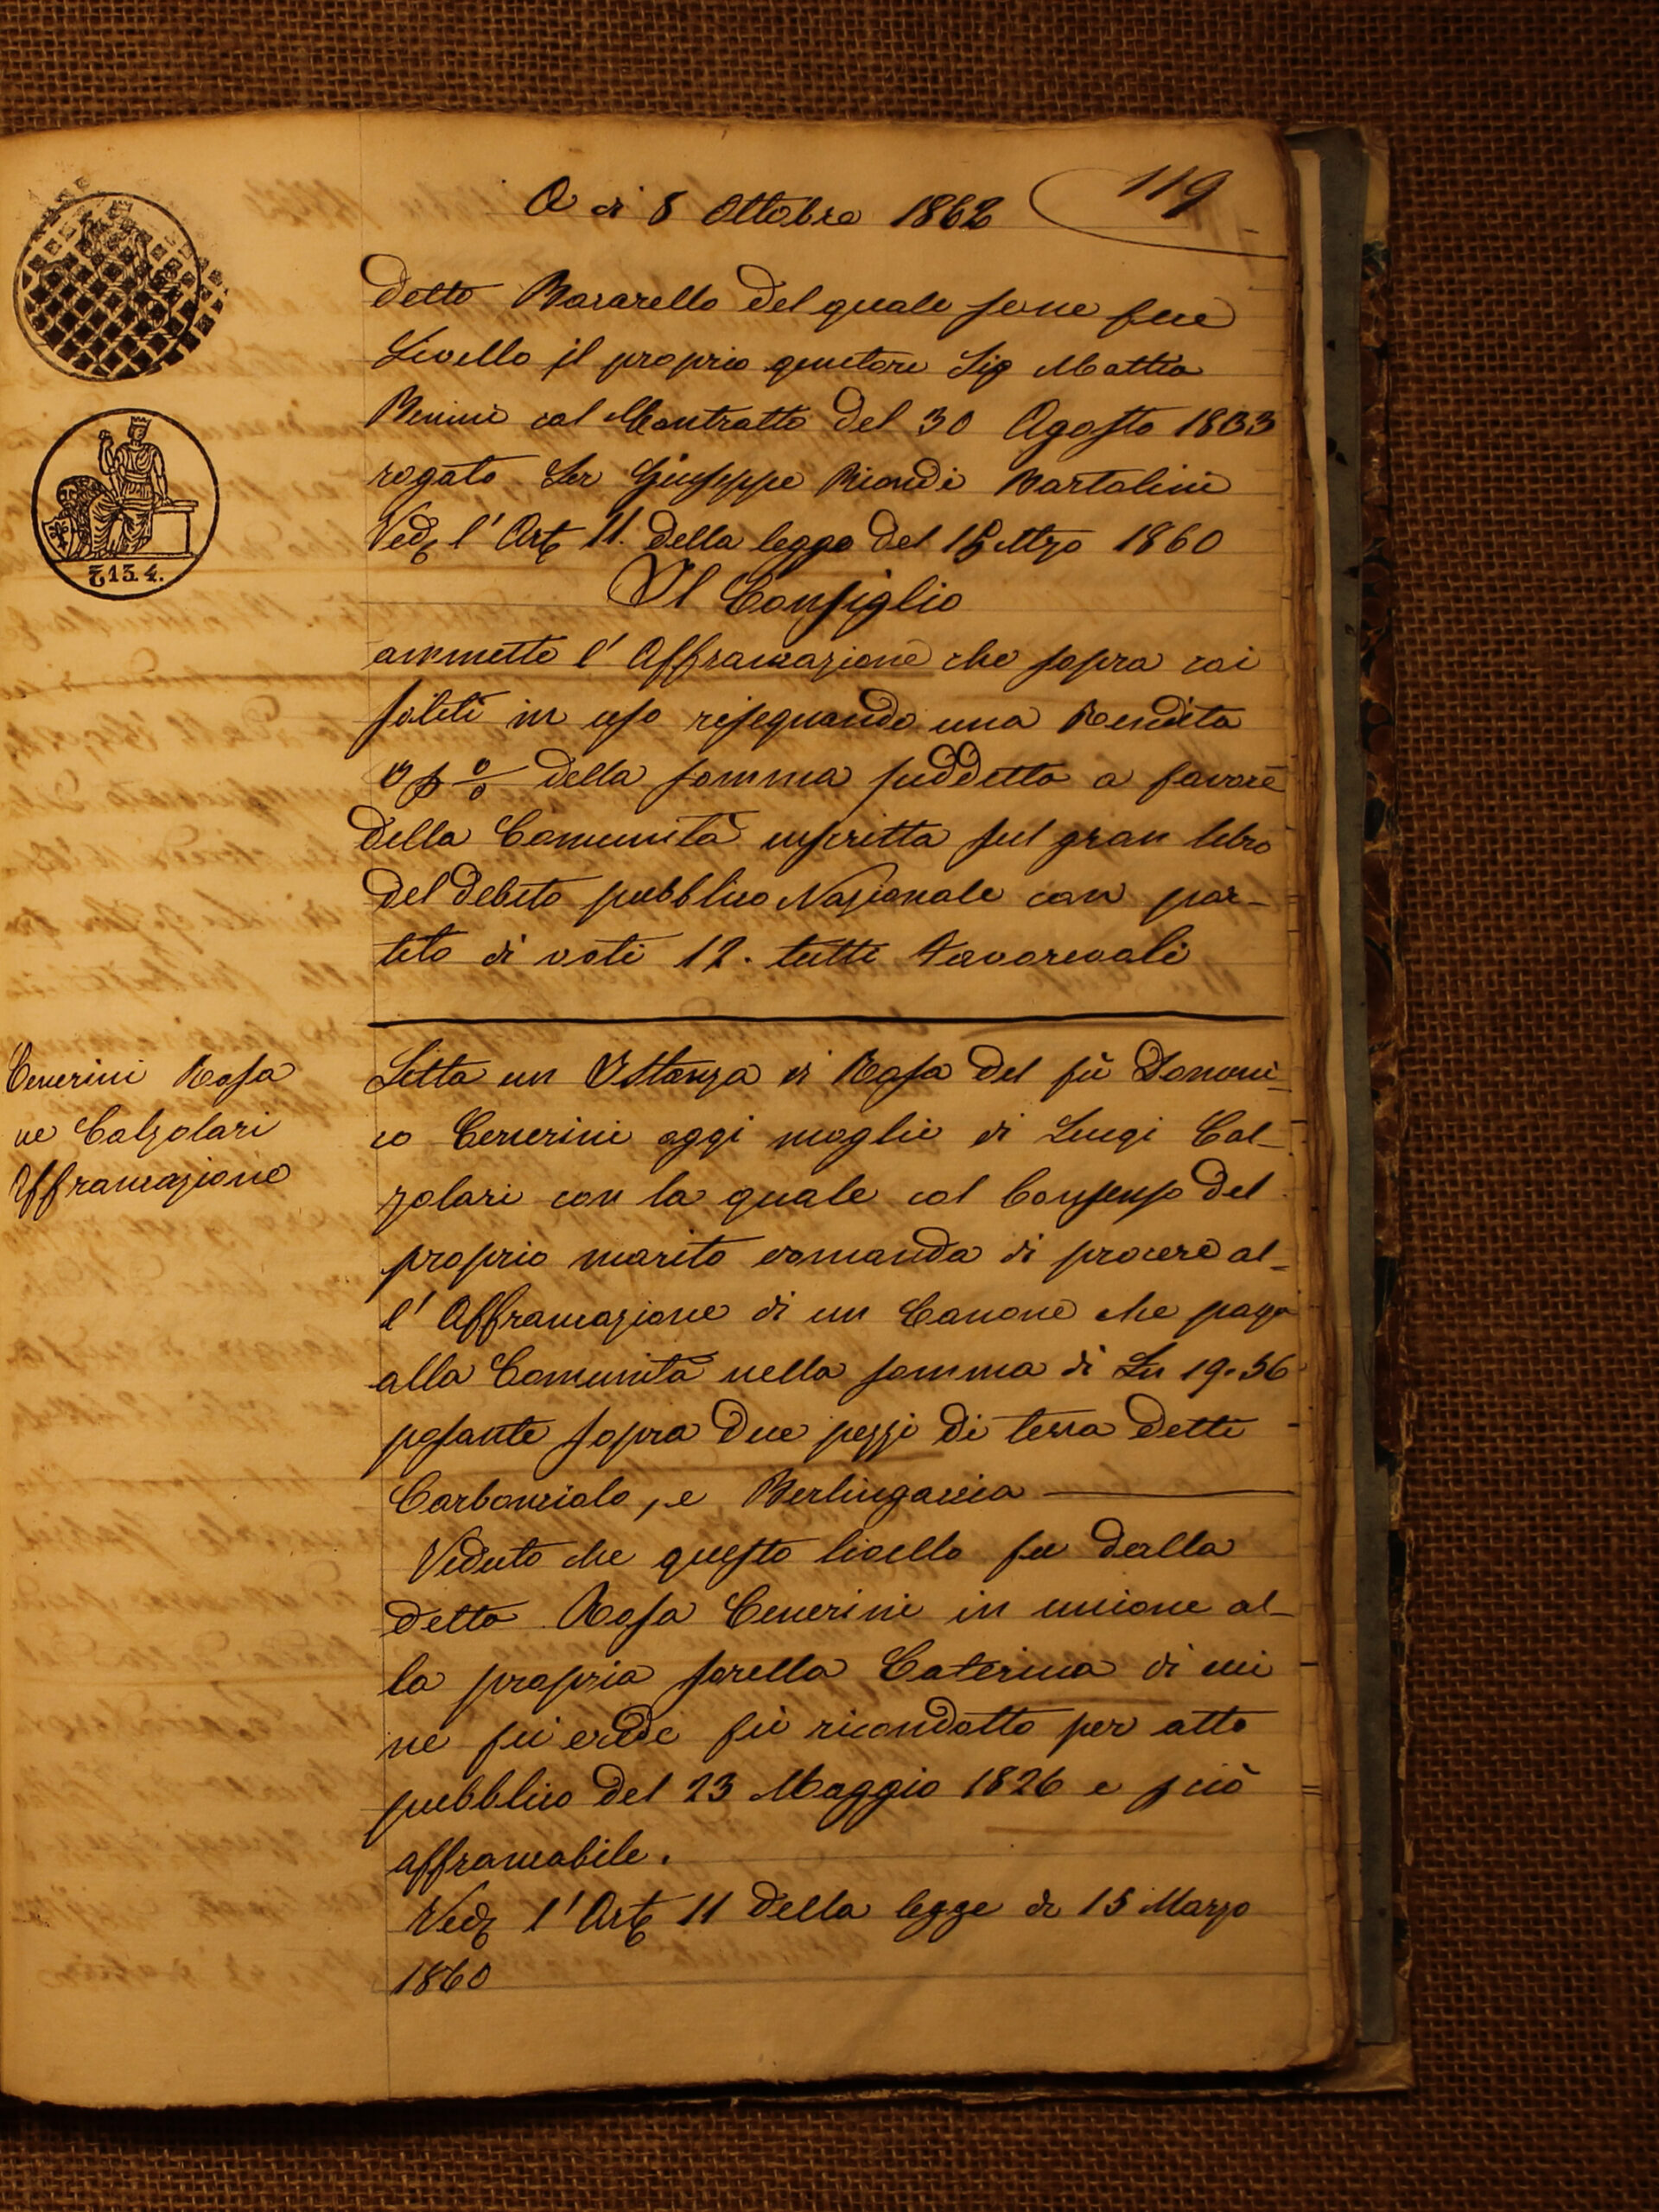 A di 8 Ottobre 1862
119
detto Bararello del quale sene fece
Livello il proprio genitore Sig Mattia
Benini col Contratto del 30 Agosto 1833
rogato Ser Giuseppe Biondi Bartolini
Ved l' Art 11. della legge del 15 Mzo 1860
Il Consiglio
ammette l' Affrancazione che sopra coi
soliti in uso risegnando una Rendita
della somma suddetta a favore
della Comunità inscritta sul gran libro
del debito pubblico Nazionale con par-
tito di voti 12. tutti Favorevoli
£ 13. 4.
Cenerini Rosa
ne Calzolari
Affrancazione
Letta un Istanza di Rosa del fù Domeni-
co Cenerini oggi moglie di Luigi Cal-
zolari con la quale col Consenso del
proprio marito domanda di procere al-
l' Affrancazione di un Canone che paga
alla Comunità nella somma di Ln 19.56
posante sopra due pezzi di terra detti
Carbonciolo, e Berlingaccia
Veduto che questo livello fu dalla
detta Rosa Cenerini in unione al-
la propria sorella Caterina di cui
ne fu erede fù ricondotto per atto
pubblico del 23 Maggio 1826 e perciò
affrancabile.
Ved l' Art 11 della legge di 15 Marzo
1860